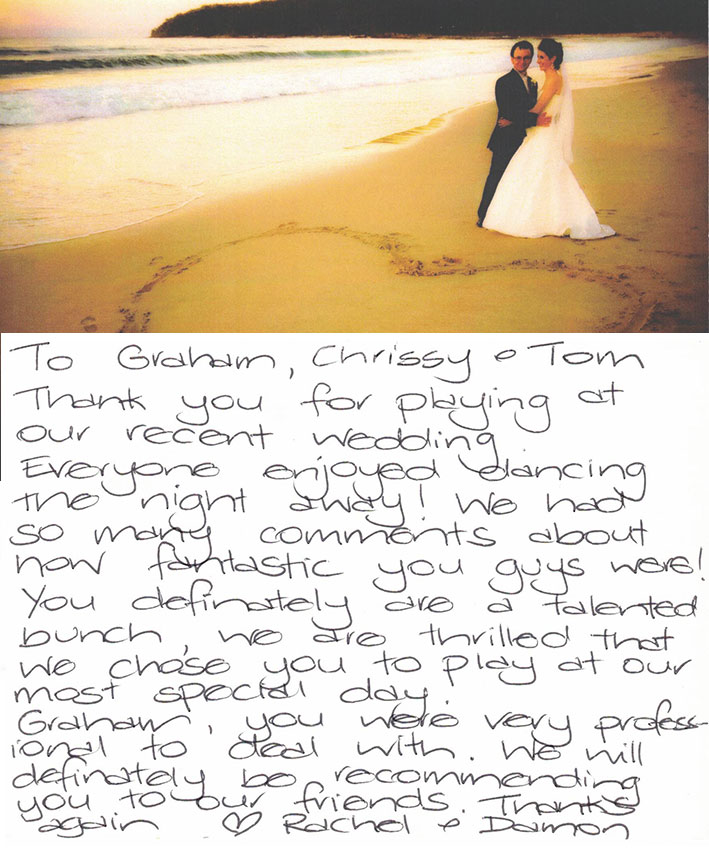 To Graham, Chrissy & Tom
Thank you for playing at
our recent wedding.
Everyone enjoyed dancing
the night away! We had
so many comments about
how fantastic you guys were!
You definately are a talented
bunch, we are thrilled that
we chose you to play at our
most special day.
Graham, you were very profess-
ional to deal with. We will
definately be recommending
you to our friends. Thanks
again ♡ Rachel & Damon